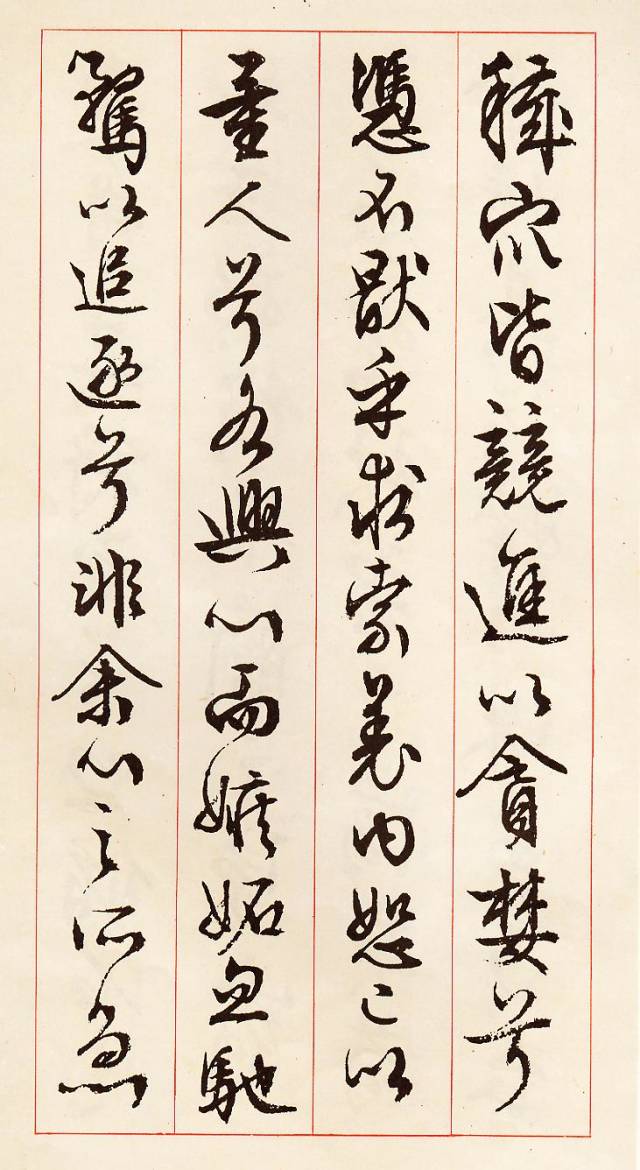 穢眾皆競進以貪婪兮
憑不猒乎求索羌內恕己以
量人兮各興心而嫉妬忽馳
騖以追逐兮非余心之所急